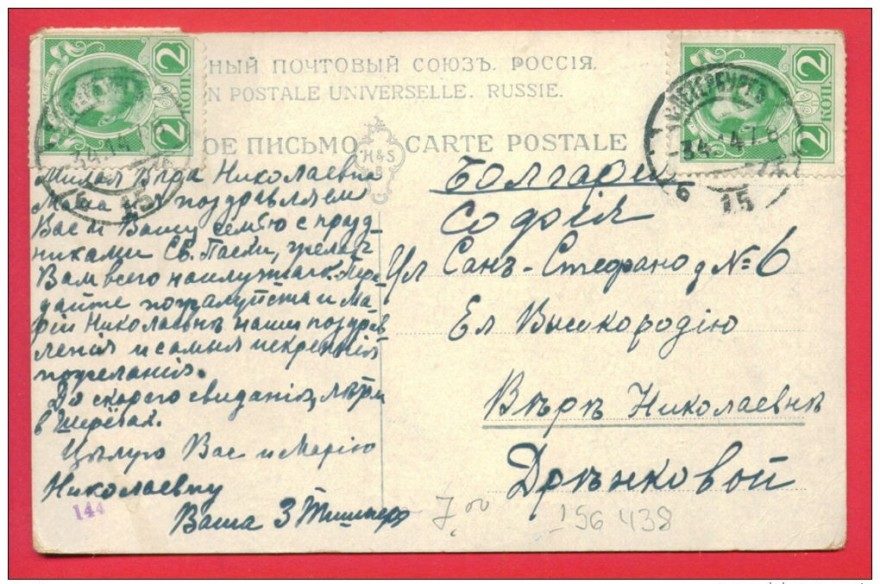 НЫЙ ПОЧТОВЫЙ СОЮЗЪ. РОССІЯ.
N POSTALE UNIVERSELLE. RUSSIE.
ОЕ ПИСЬМО
CARTE POSTALE
H & S
B
2
КОП
2
КОП
С.ПЕТЕРБУРГЪ
15
Милая Вѣра Николаевна
Маша и я поздравляем
Вас и Вашу семью с празд
никами Св. Пасхи, желаем
Вам всего наилучшаго. Пере
дайте пожалуйста и Ма
рій Николаевнѣ наши поздрав
ленія и самыя искреннія
пожеланія.
До скораго свиданія, лѣтом
в
Цѣлую Вас и Марію
Николаевну
Ваша З
144
Болгарія
Софія
Ул Санъ-Стефано д № 6
Ел Высокородію
Вѣрѣ Николаевнѣ
Дрѣнковой
7.00
156 438